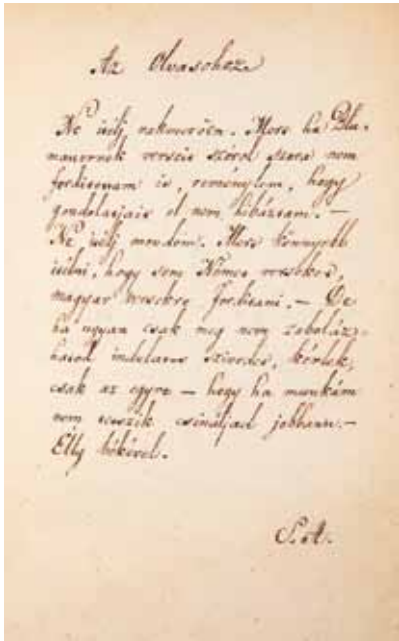 Az Olvasohoz
Ne itélj rakoncoen. Mert ha Blu-
mauernek verseit szorol szora nem
forditottam is, reménylem, hogy
gondolatjait el nem hibáztam. —
Ne itélj mondom. Mert könnyebb
itélni, hogy sem Német verseket,
magyar versekre forditani. — De
ha ugyan csak meg nem zaboláz-
hatod indulatos szivedet, kérlek,
csak az egyre — hogy ha munkám
nem teczik csináljad jobbann. —
Élly békével.
S. A.